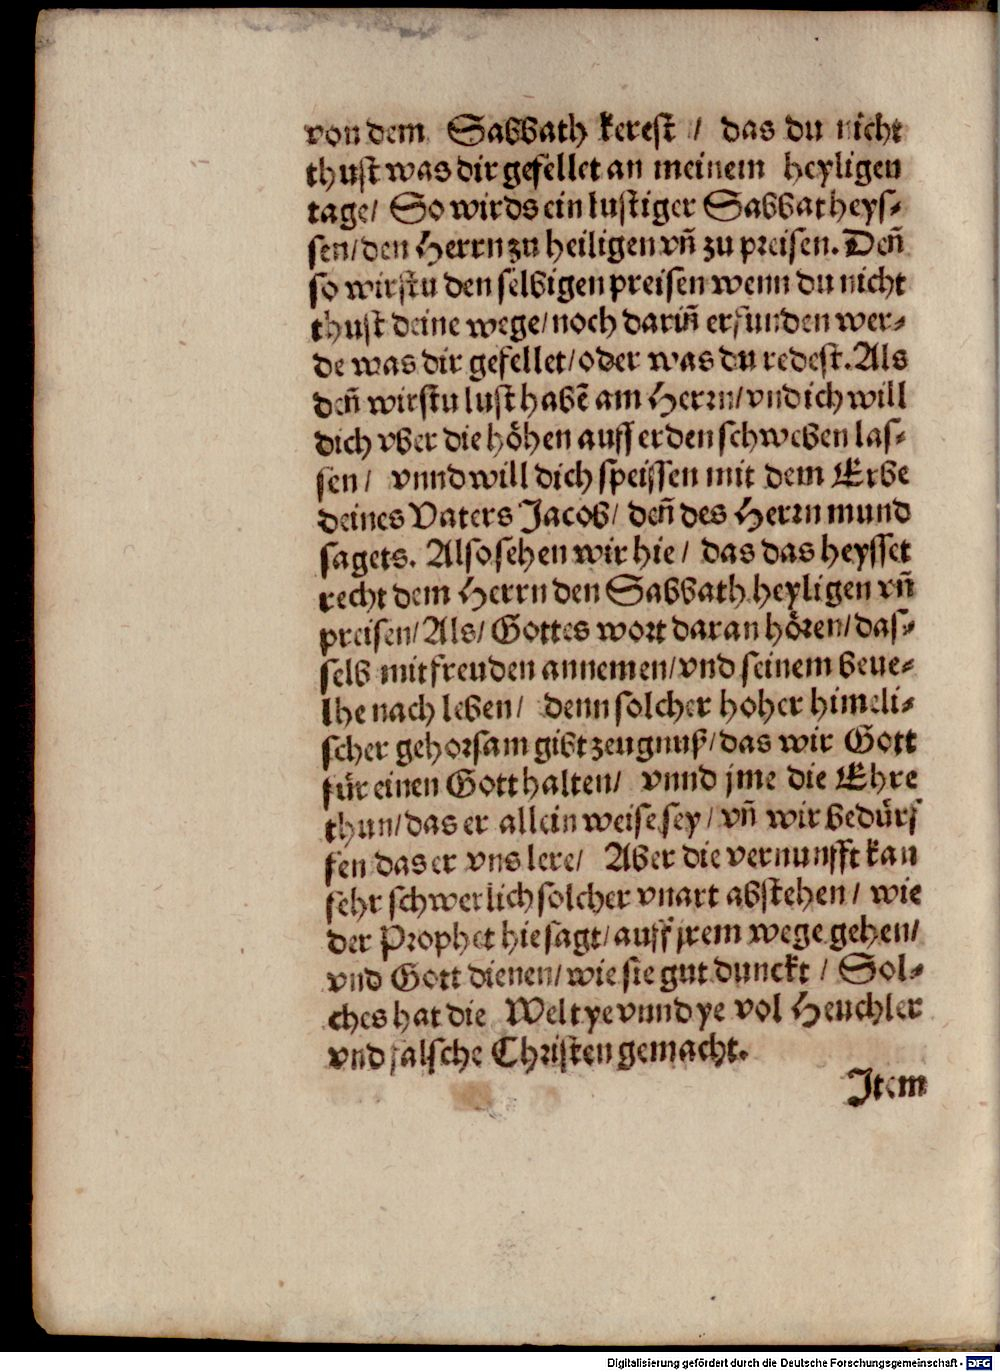 von dem Sabbath kerest / das du nicht
thust was dir gefellet an meinem heyligen
tage/ So wirds ein lustiger Sabbat heys⸗
sen/ den Herrn zu heiligen vñ zu preisen. Deñ
so wirstu den selbigen preisen wenn du nicht
thust deine wege/ noch dariñ erfunden wer⸗
de was dir gefellet/ oder was du redest. Als
deñ wirstu lust habẽ am Herrn/ vnd ich will
dich vber die höhen auff erden schweben las⸗
sen / vnnd will dich speissen mit dem Erbe
deines Vaters Jacob/ deñ des Herrn mund
sagets. Also sehen wir hie / das das heysset
recht dem Herrn den Sabbath heyligen vñ
preisen/ Als/ Gottes wort daran hören/ das⸗
selb mit freuden annemen/ vnd seinem beue⸗
lhe nach leben / denn solcher hoher himeli⸗
scher gehorsam gibt zeugnuß/ das wir Gott
für einen Gott halten/ vnnd jme die Ehre
thun/ das er allein weise sey / vñ wir bedürf
fen das er vns lere/ Aber die vernunfft kan
sehr schwerlich solcher vnart abstehen / wie
der Prophet hie sagt/ auff jrem wege gehen/
vnd Gott dienen/ wie sie gut dunckt / Sol⸗
ches hat die Welt ye vnnd ye vol Heuchler
vnd falsche Christen gemacht.
Item
Digitalisierung gefördert durch die Deutsche Forschungsgemeinschaft - DFG